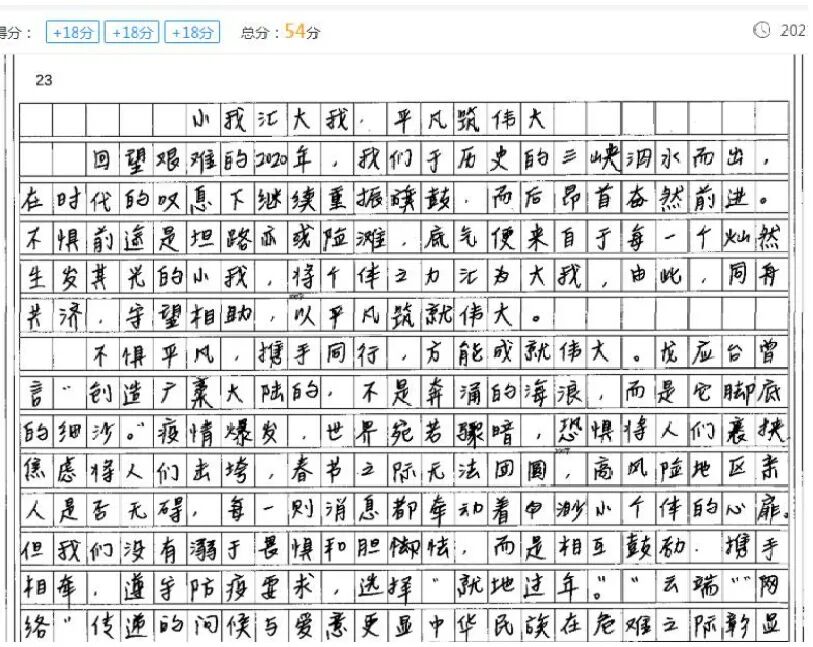 得分： +18分 +18分 +18分 总分：54分 202
23
小我汇大我，平凡筑伟大
回望艰难的2020年，我们于历史的三峡泅水而出，
在时代的叹息下继续重振旗鼓，而后昂首奋然前进。
不惧前途是坦路亦或险滩，底气便来自于每一个灿然
生发其光的小我，将个体之力汇为大我，由此，同舟
共济，守望相助，以平凡筑就伟大。
不惧平凡，携手同行，方能成就伟大。龙应台曾
言“创造广袤大陆的，不是奔涌的海浪，而是它脚底
的细沙。”疫情爆发，世界宛若骤暗，恐惧将人们裹挟
焦虑将人们击垮，春节之际无法团圆，高风险地区亲
人是否无碍，每一则消息都牵动着中渺小个体的心扉。
但我们没有溺于畏惧和胆怯，而是相互鼓劲，携手
相牵，遵守防疫要求，选择“就地过年。”“云端”“网
络”传递的问候与爱意更显中华民族在危难之际彰显